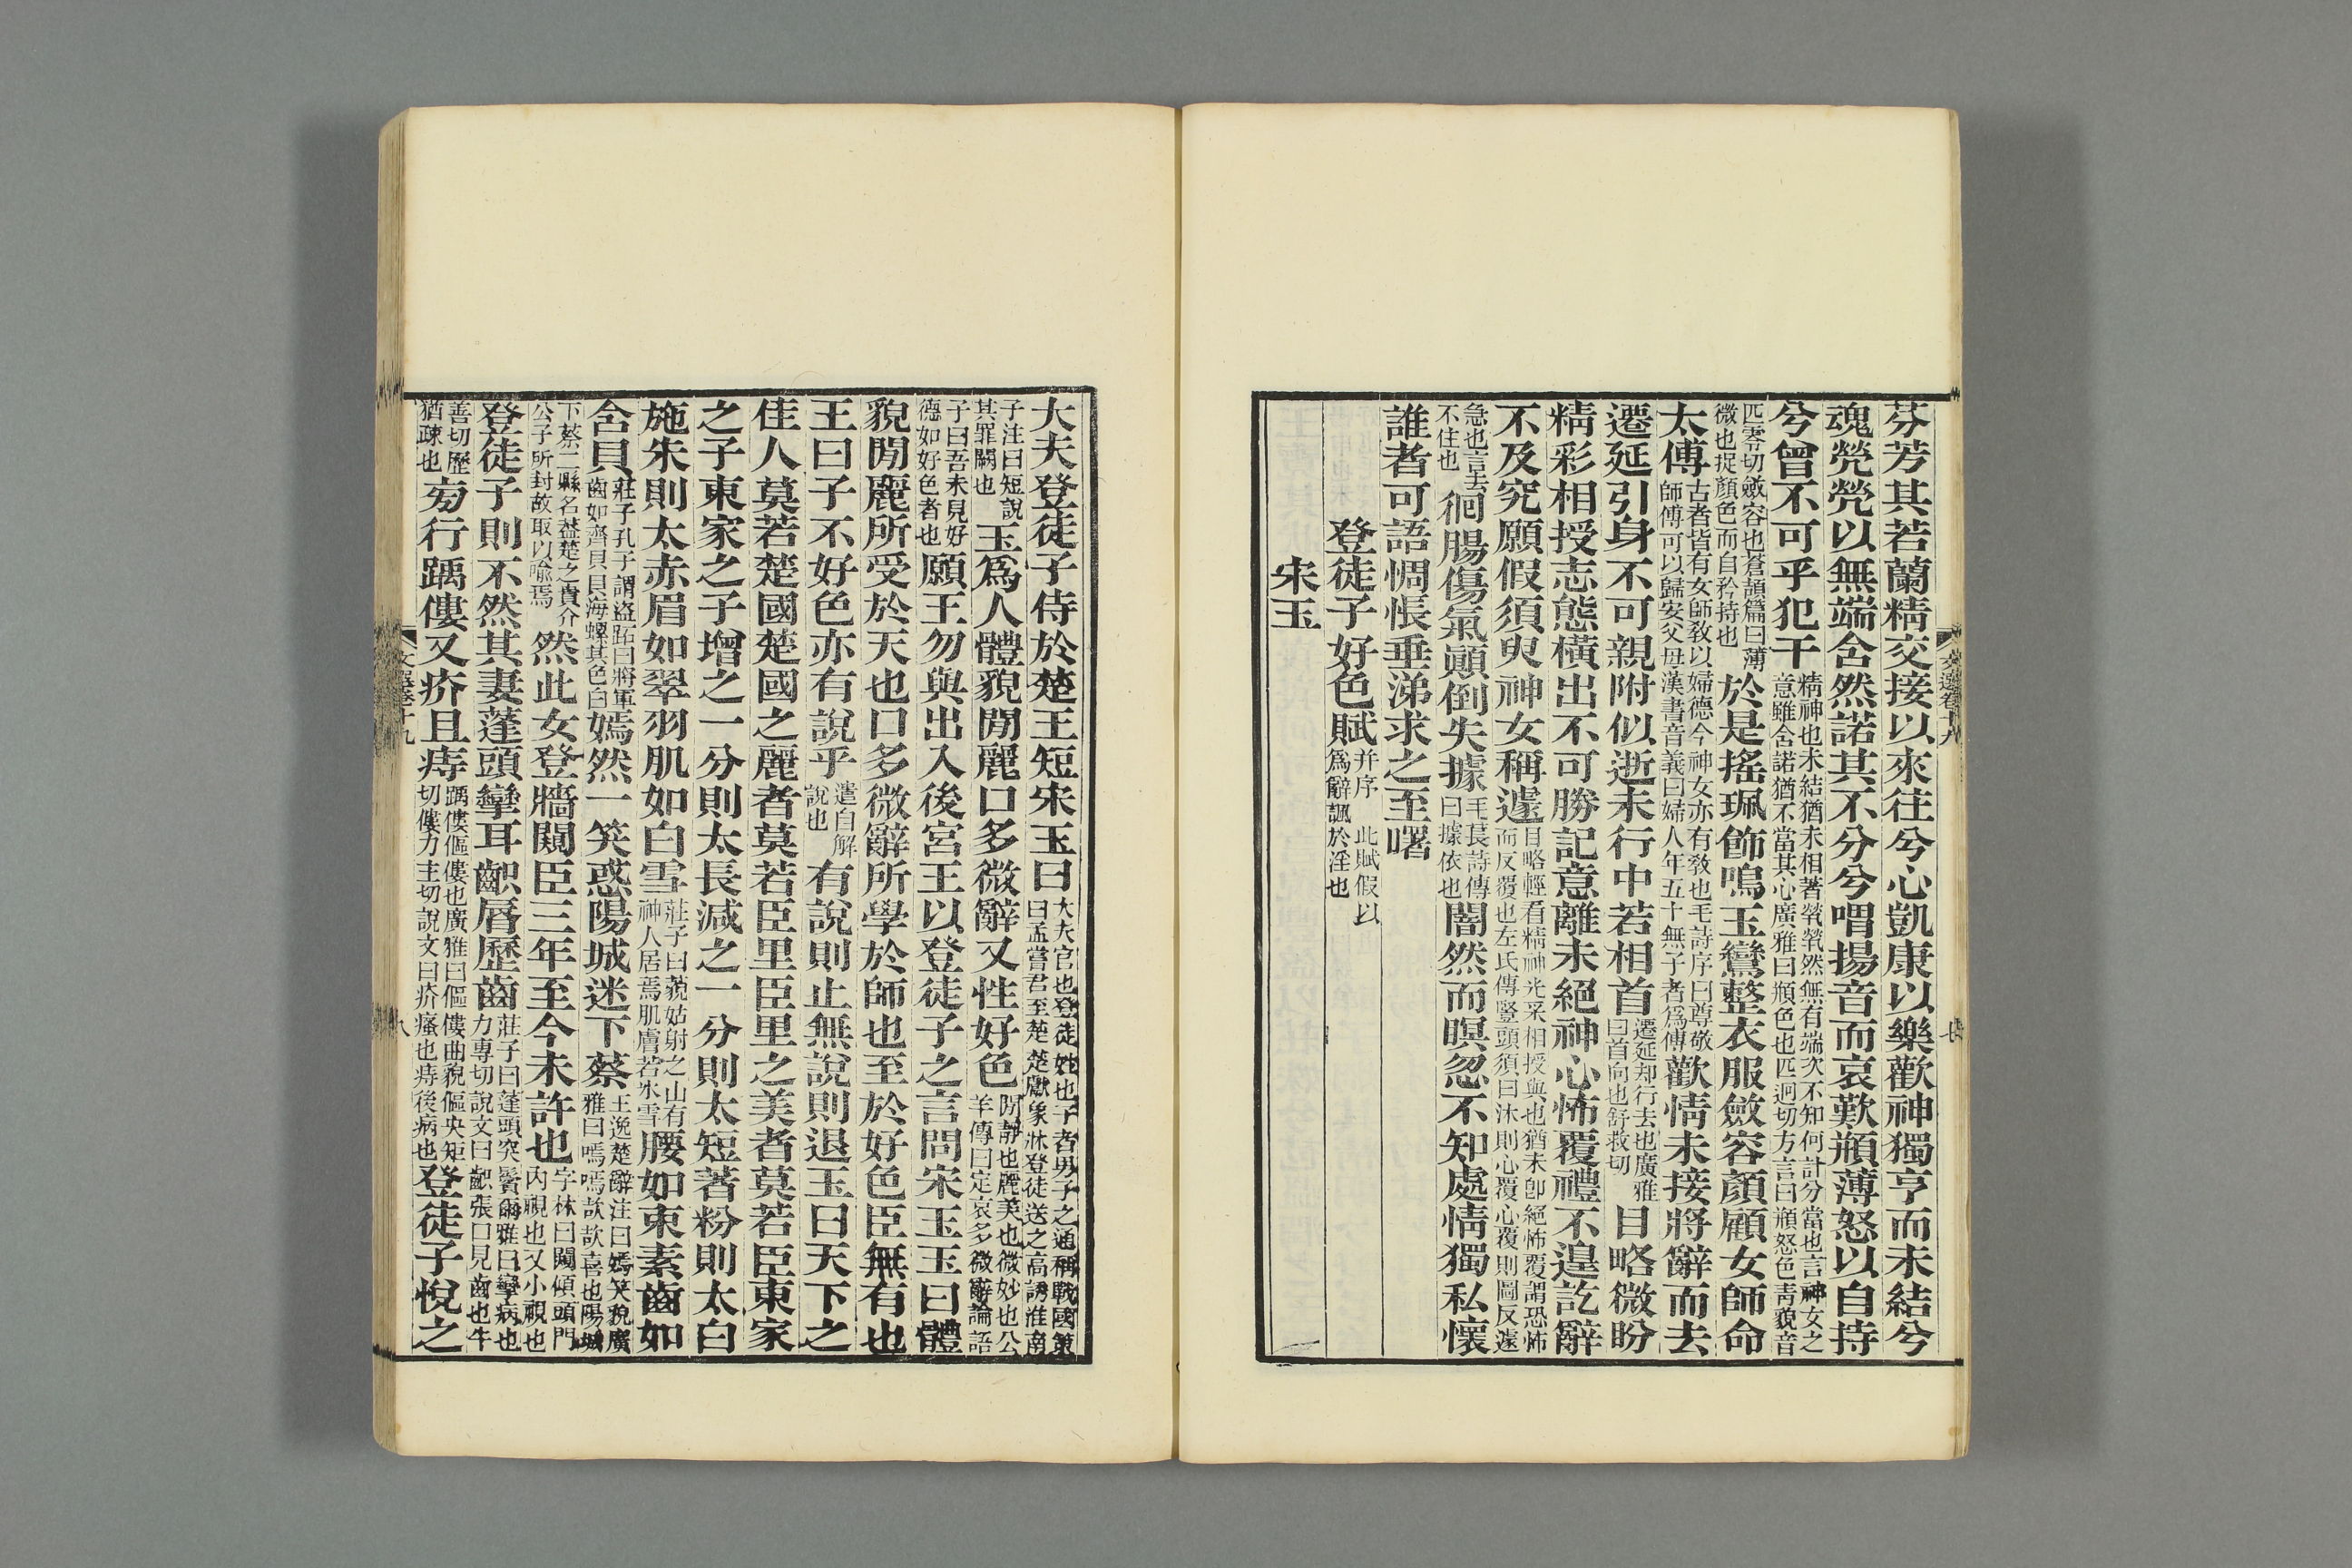 芬芳其若蘭精交接以來往兮心凱康以樂歡神獨亨而未結兮
魂煢煢以無端含然諾其不分兮喟揚音而哀歎頩薄怒以自持
兮曾不可乎犯干精神也未結猶未相著煢煢然無有端次不知何計分當也言神女之意雖含諾猶不當其心廣雅曰頩色也匹迥切方言曰頩怒色靑貌音
匹零切斂容也蒼頡篇曰薄微也捉顏色而自矜持也於是搖珮飾鳴玉鸞整衣服斂容顏顧女師命
太傅古者皆有女師敎以婦德今神女亦有敎也毛詩序曰尊敬師傅可以歸安父母漢書音義曰婦人年五十無子者爲傅歡情未接將辭而去
遷延引身不可親附似逝未行中若相首遷延却行去也廣雅曰首向也舒救切目略微盼
精彩相授志態橫出不可勝記意離未絕神心怖覆禮不遑訖辭
不及究願假須臾神女稱遽目略輕看精神光采相授與也猶未卽絕怖覆謂恐怖而反覆也左氏傳豎頭須曰沐則心覆心覆則圖反遽
急也言去不住也徊腸傷氣顚倒失據毛萇詩傳曰據依也闇然而暝忽不知處情獨私懷
誰者可語惆悵垂涕求之至曙
登徒子好色賦并序 此賦假以爲辭諷於淫也
宋玉
文選卷十九
大夫登徒子侍於楚王短宋玉曰大夫官也登徒姓也子者男子之通稱戰國策曰孟嘗君至楚楚獻象牀登徒送之高誘淮南
子注曰短說其罪闕也玉爲人體貌閒麗口多微辭又性好色閒靜也麗美也微妙也公羊傳曰定哀多微辭論語
子曰吾未見好德如好色者也願王勿與出入後宮王以登徒子之言問宋玉玉曰體
貌閒麗所受於天也口多微辭所學於師也至於好色臣無有也
王曰子不好色亦有說乎遣自解說也有說則止無說則退玉曰天下之
佳人莫若楚國楚國之麗者莫若臣里臣里之美者莫若臣東家
之子東家之子增之一分則太長減之一分則太短著粉則太白
施朱則太赤眉如翠羽肌如白雪莊子曰藐姑射之山有神人居焉肌膚若冰雪腰如束素齒如
含貝莊子孔子謂盜跖曰將軍齒如齊貝貝海螺其色白嫣然一笑惑陽城迷下蔡王逸楚辭注曰嫣笑貌廣雅曰嗎嗎㰤㰤喜也陽城
下蔡二縣名蓋楚之貴介公子所封故取以喩焉然此女登牆闚臣三年至今未許也字林曰闚傾頭門內視也又小視也
登徒子則不然其妻蓬頭攣耳齞脣歷齒莊子曰蓬頭突鬢爾雅曰攣病也力專切說文曰齞張口見齒也牛
善切歷猶疎也旁行踽僂又疥且痔踽僂傴僂也廣雅曰傴僂曲貌傴央矩切僂力主切說文曰疥瘙也痔後病也登徒子悅之
文選卷十九
八